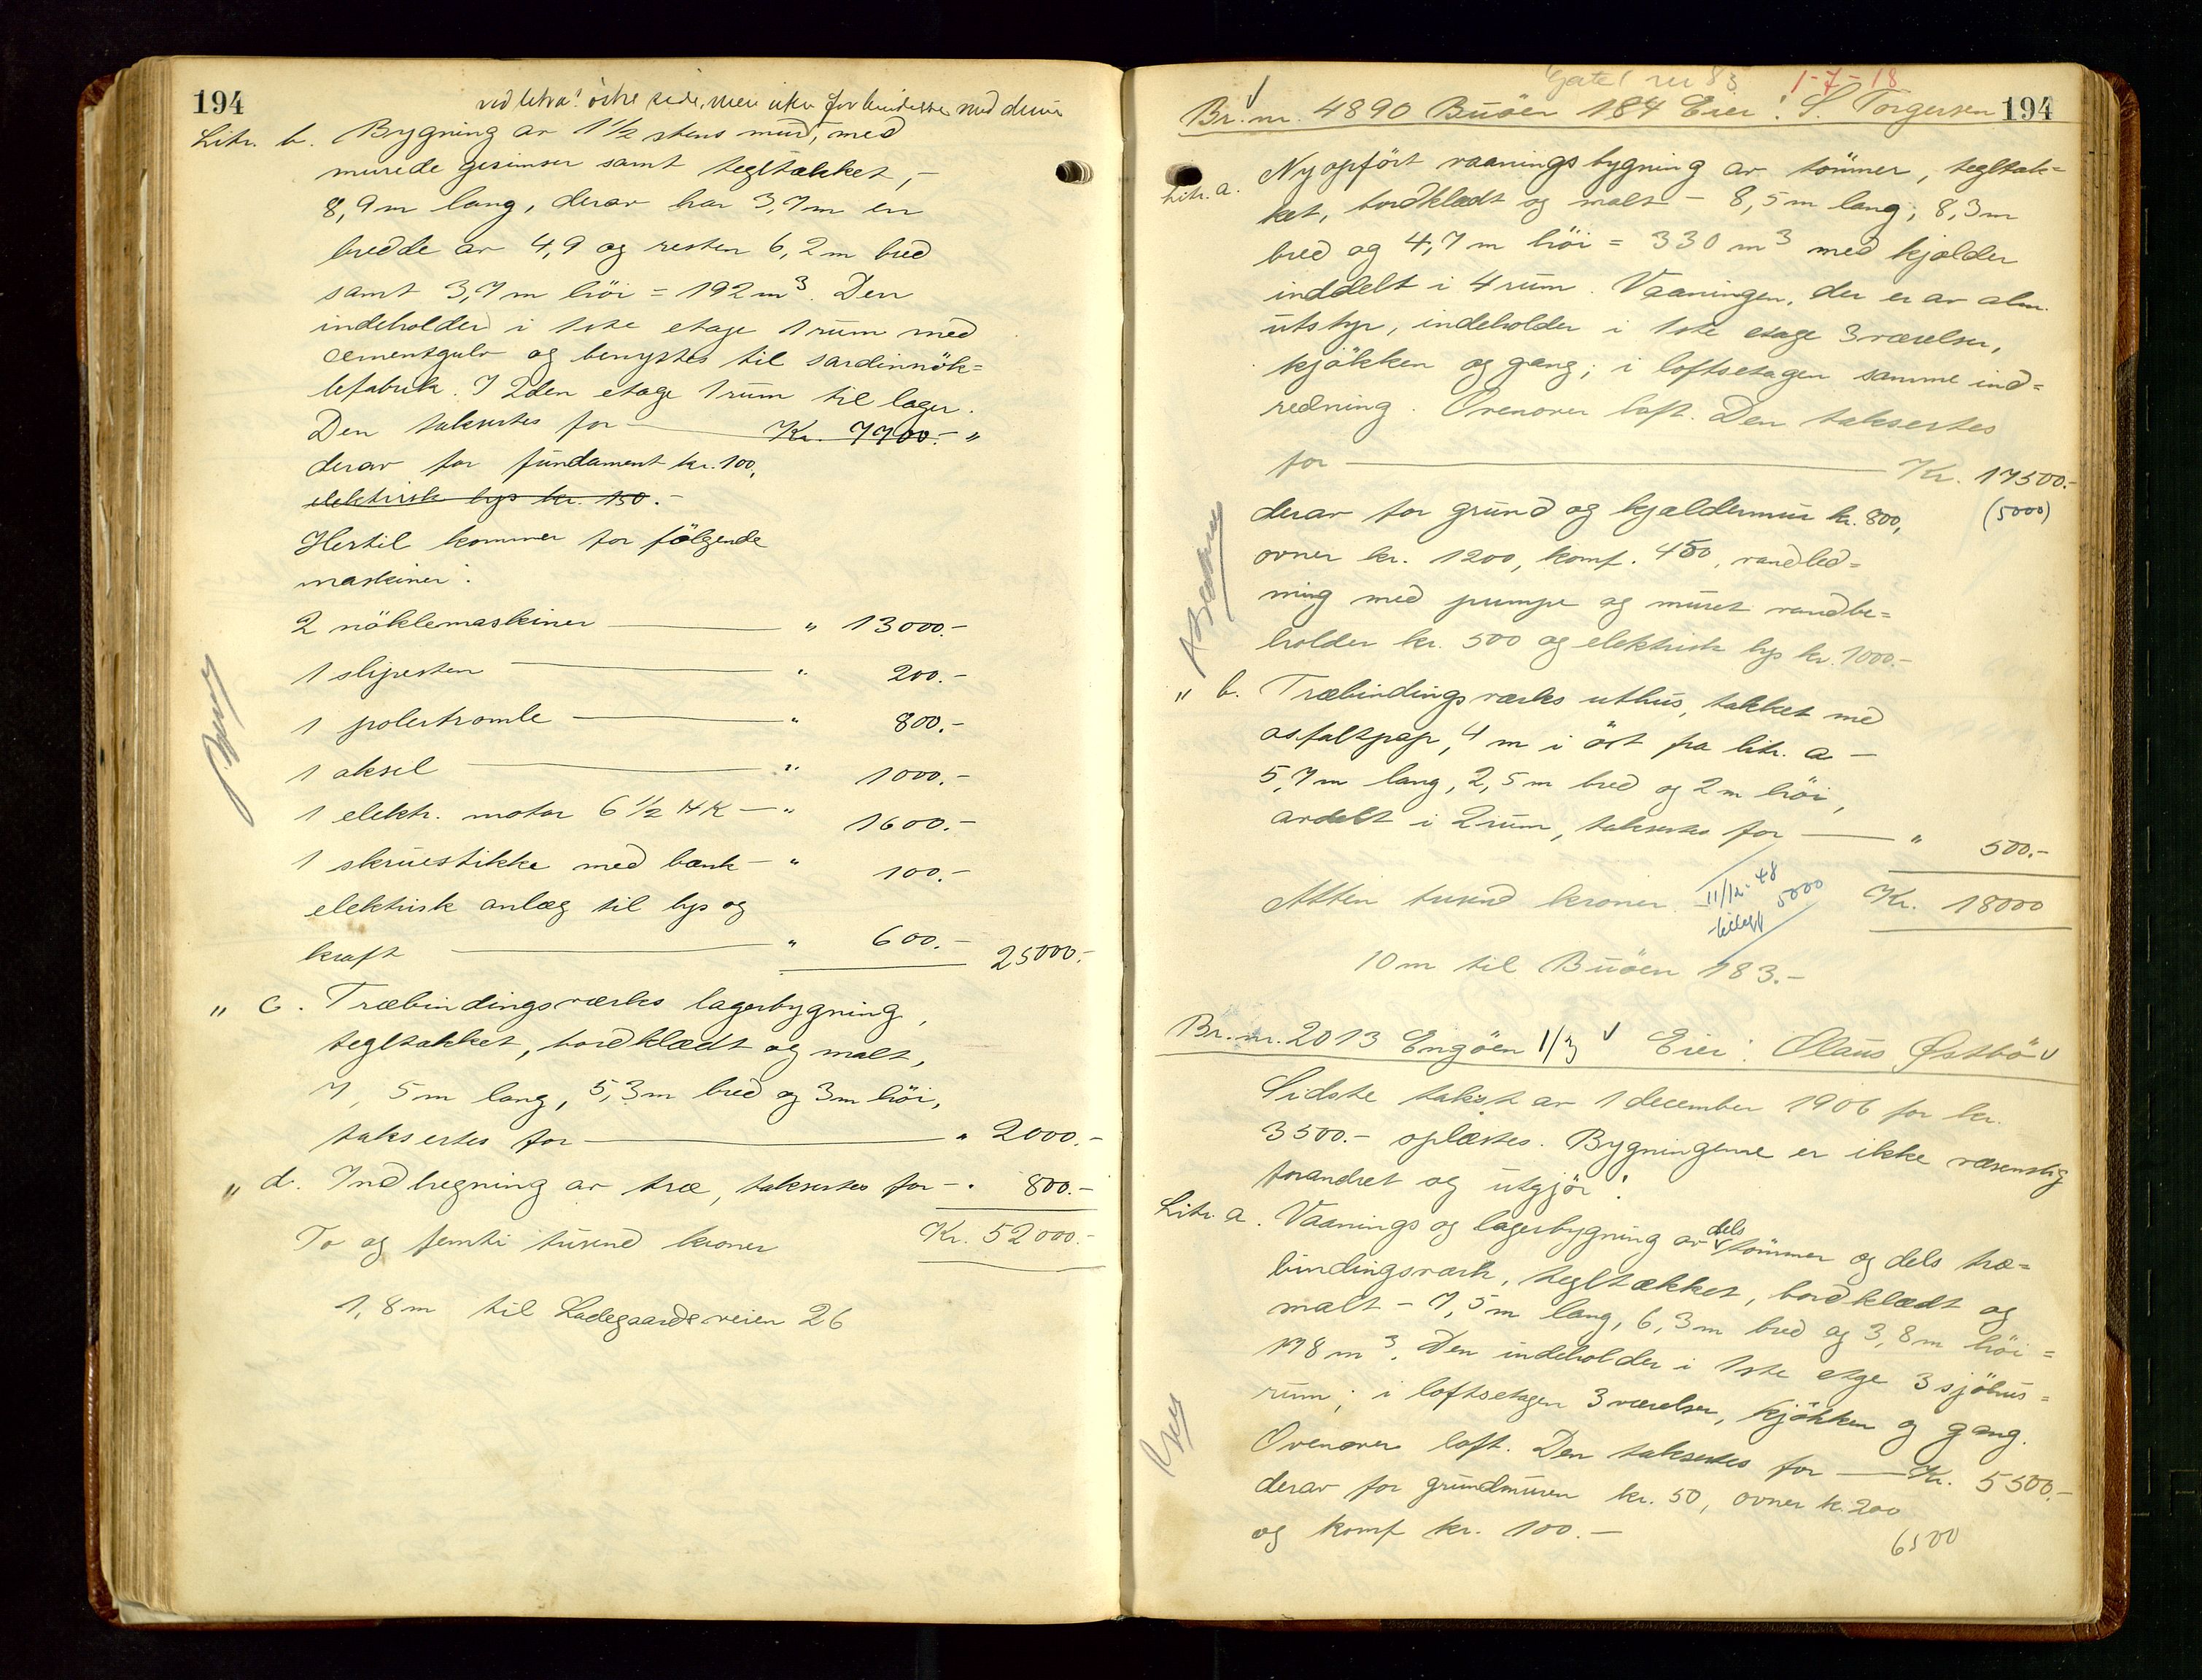 194
ved litra a's östre side, men uten forbindelse med denne
Litr. b. Bygning av 1½ stens mur, med
murede gesimser samt tegltækket, -
8,9 m lang, derav har 3,7 m en
bredde av 4,9 og resten 6,2 m bred
samt 3,7 m höi = 192 m³. Den
indeholder i 1ste etage 1 rum med
cementgulv og benyttes til sardinnök-
lefabrik. I 2den etage 1 rum til lager.
Den taksertes for Kr. 7700.- "
derav for fundament kr. 100,
elektrisk lys kr. 150.-
Hertil kommer for følgende
maskiner:
2 nöklemaskiner " 13000.-
1 slipesten " 200.-
1 polertromle " 800.-
1 aksel " 1000.-
1 elektr. motor 6½ HK - " 1600.-
1 skruestikke med bænk - " 100.-
elektrisk anlæg til lys og
kraft " 600.- 25000.-
" c. Træbindingsverks lagerbygning,
tegltækket, bordklædt og malt,
7,5 m lang, 5,3 m bred og 3 m höi,
taksertes for " 2000.-
" d. Indhegning av træ, taksertes for - " 800.-
To og femti tusend kroner Kr. 52000.-
1,8 m til Ladegaardsveien 26
Gate 1 nr 83 1-7-18
Br. nr. 4890 Buöen 184 Eier: S. Torgersen 194
Litr. a. Nyopfört vaaningsbygning av tömmer, tegltæk-
ket, bordklædt og malt - 8,5 m lang, 8,3 m
bred og 4,7 m höi = 330 m³ med kjælder
inddelt i 4 rum. Vaaningen, der er av alm.
utstyr, indeholder i 1ste etage 3 værelser,
kjökken og gang; i loftsetagen samme ind-
redning. Ovenover loft. Den taksertes
for Kr. 17500.-
derav for grund og kjældermur kr. 800, (5000)
ovner kr. 1200, komf. 450, vandled-
ning med pumpe og muret vandbe-
holder kr. 500 og elektrisk lys kr. 1000.-
" b. Træbindingsverks uthus, tækket med
asfaltpap, 4 m i öst fra litr. a -
5,7 m lang, 2,5 m bred og 2 m höi,
avdelt i 2 rum, taksertes for " 500.-
Atten tusend kroner Kr. 18000
11/12-48
tillegg 5000
10 m til Buöen 183.-
Br. nr. 2013 Engöen 1/3 Eier: Olaus Østbö
Sidste takst av 1 december 1906 for kr.
3500.- oplæstes. Bygningerne er ikke væsenslig
forandret og utgjör:
Litr. a. Vaanings og lagerbygning av dels tömmer og dels træ-
bindingsverk, tegltækket, bordklædt og
malt - 7,5 m lang, 6,3 m bred og 3,8 m höi =
178 m³. Den indeholder i 1ste etge 3 sjöhus-
rum; i loftsetagen 3 værelser, kjökken og gang.
Ovenover loft. Den taksertes for Kr. 5500.-
derav for grundmuren kr. 50, ovner k. 200
og komf kr. 100.-
6500